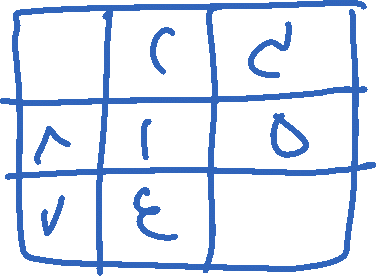 ٢ ٣
٨ ١ ٥
٧ ٤